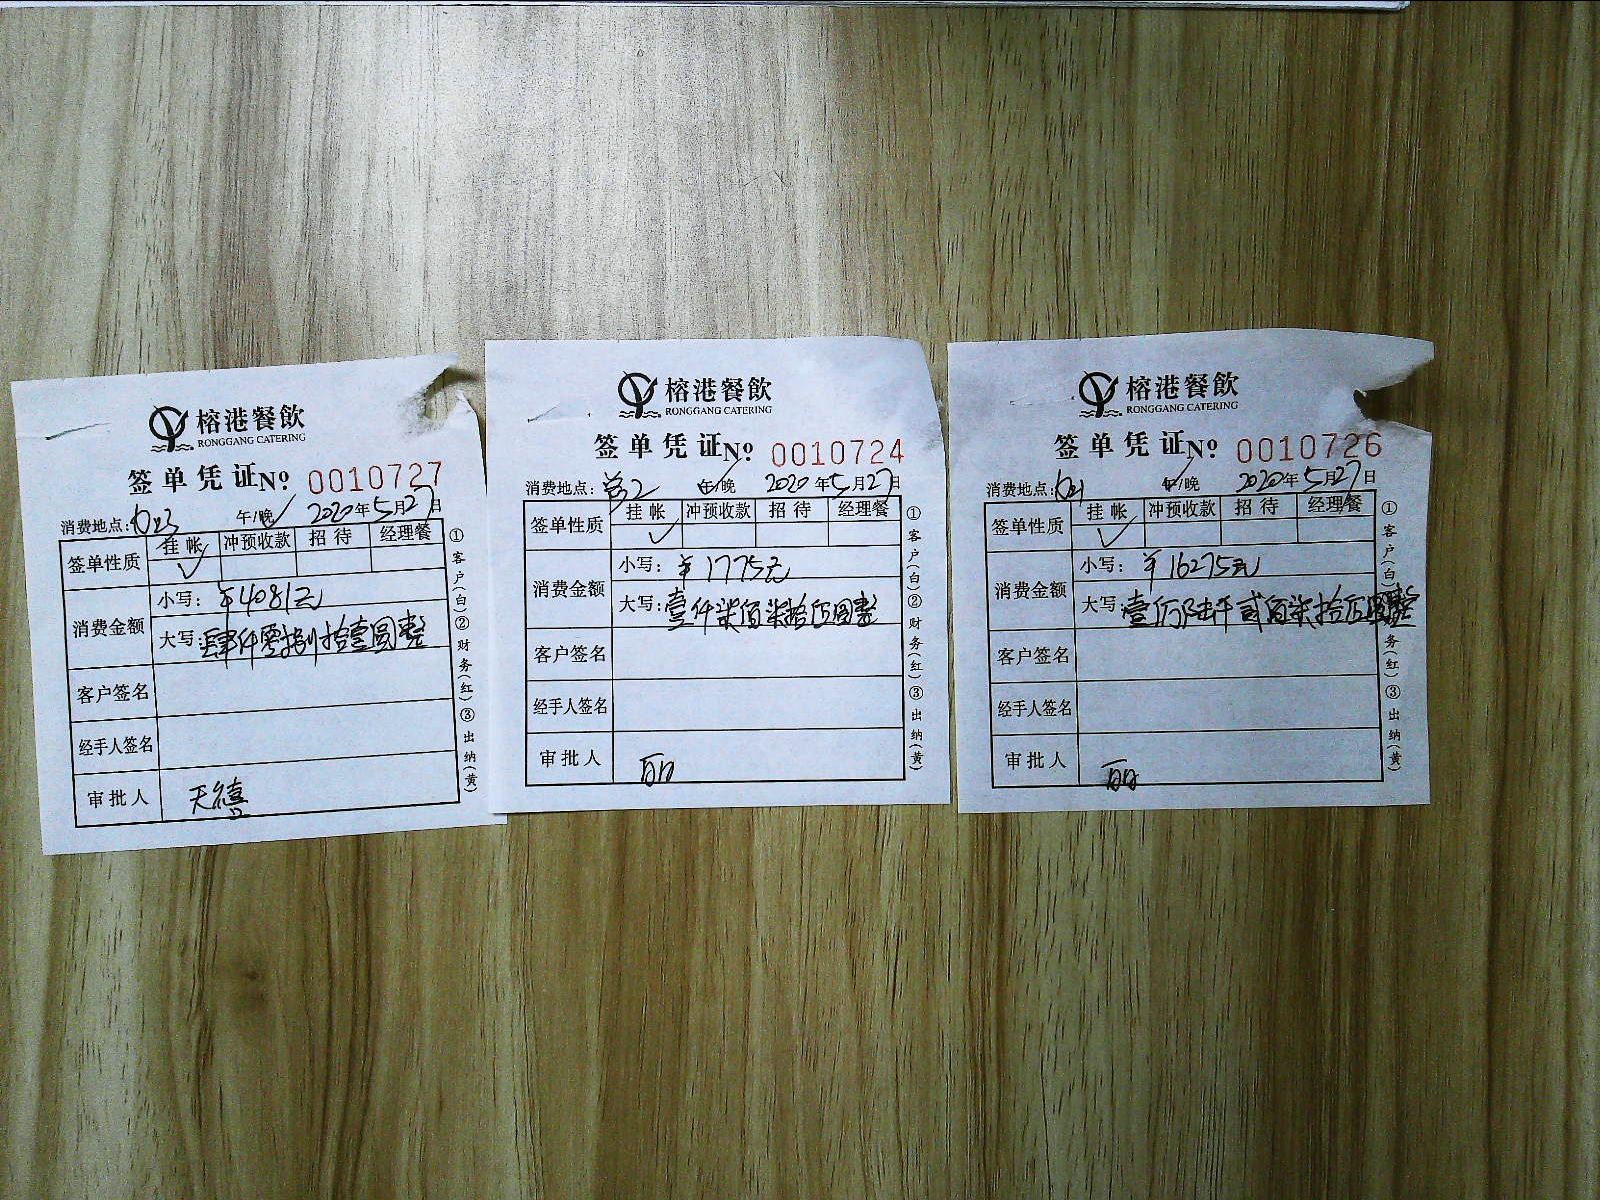 榕港餐飲
RONGGANG CATERING
签单凭证№ 0010727
消费地点: 午/晚 2020年5月27日
签单性质 挂帐 冲预收款 招待 经理餐
✓
消费金额
小写: ¥4081元
大写: 肆仟零捌拾壹圆整
客户签名
经手人签名
审批人 天禧
①客户(白)②财务(红)③出纳(黄)
榕港餐飲
RONGGANG CATERING
签单凭证№ 0010724
消费地点: 午/晚 2020年5月27日
签单性质 挂帐 冲预收款 招待 经理餐
✓
消费金额
小写: ¥1775元
大写: 壹仟柒佰柒拾伍圆整
客户签名
经手人签名
审批人
①客户(白)②财务(红)③出纳(黄)
榕港餐飲
RONGGANG CATERING
签单凭证№ 0010726
消费地点: 午/晚 2020年5月27日
签单性质 挂帐 冲预收款 招待 经理餐
✓
消费金额
小写: ¥16275元
大写: 壹万陆仟贰佰柒拾伍圆整
客户签名
经手人签名
审批人
①客户(白) 务(红)③出纳(黄)